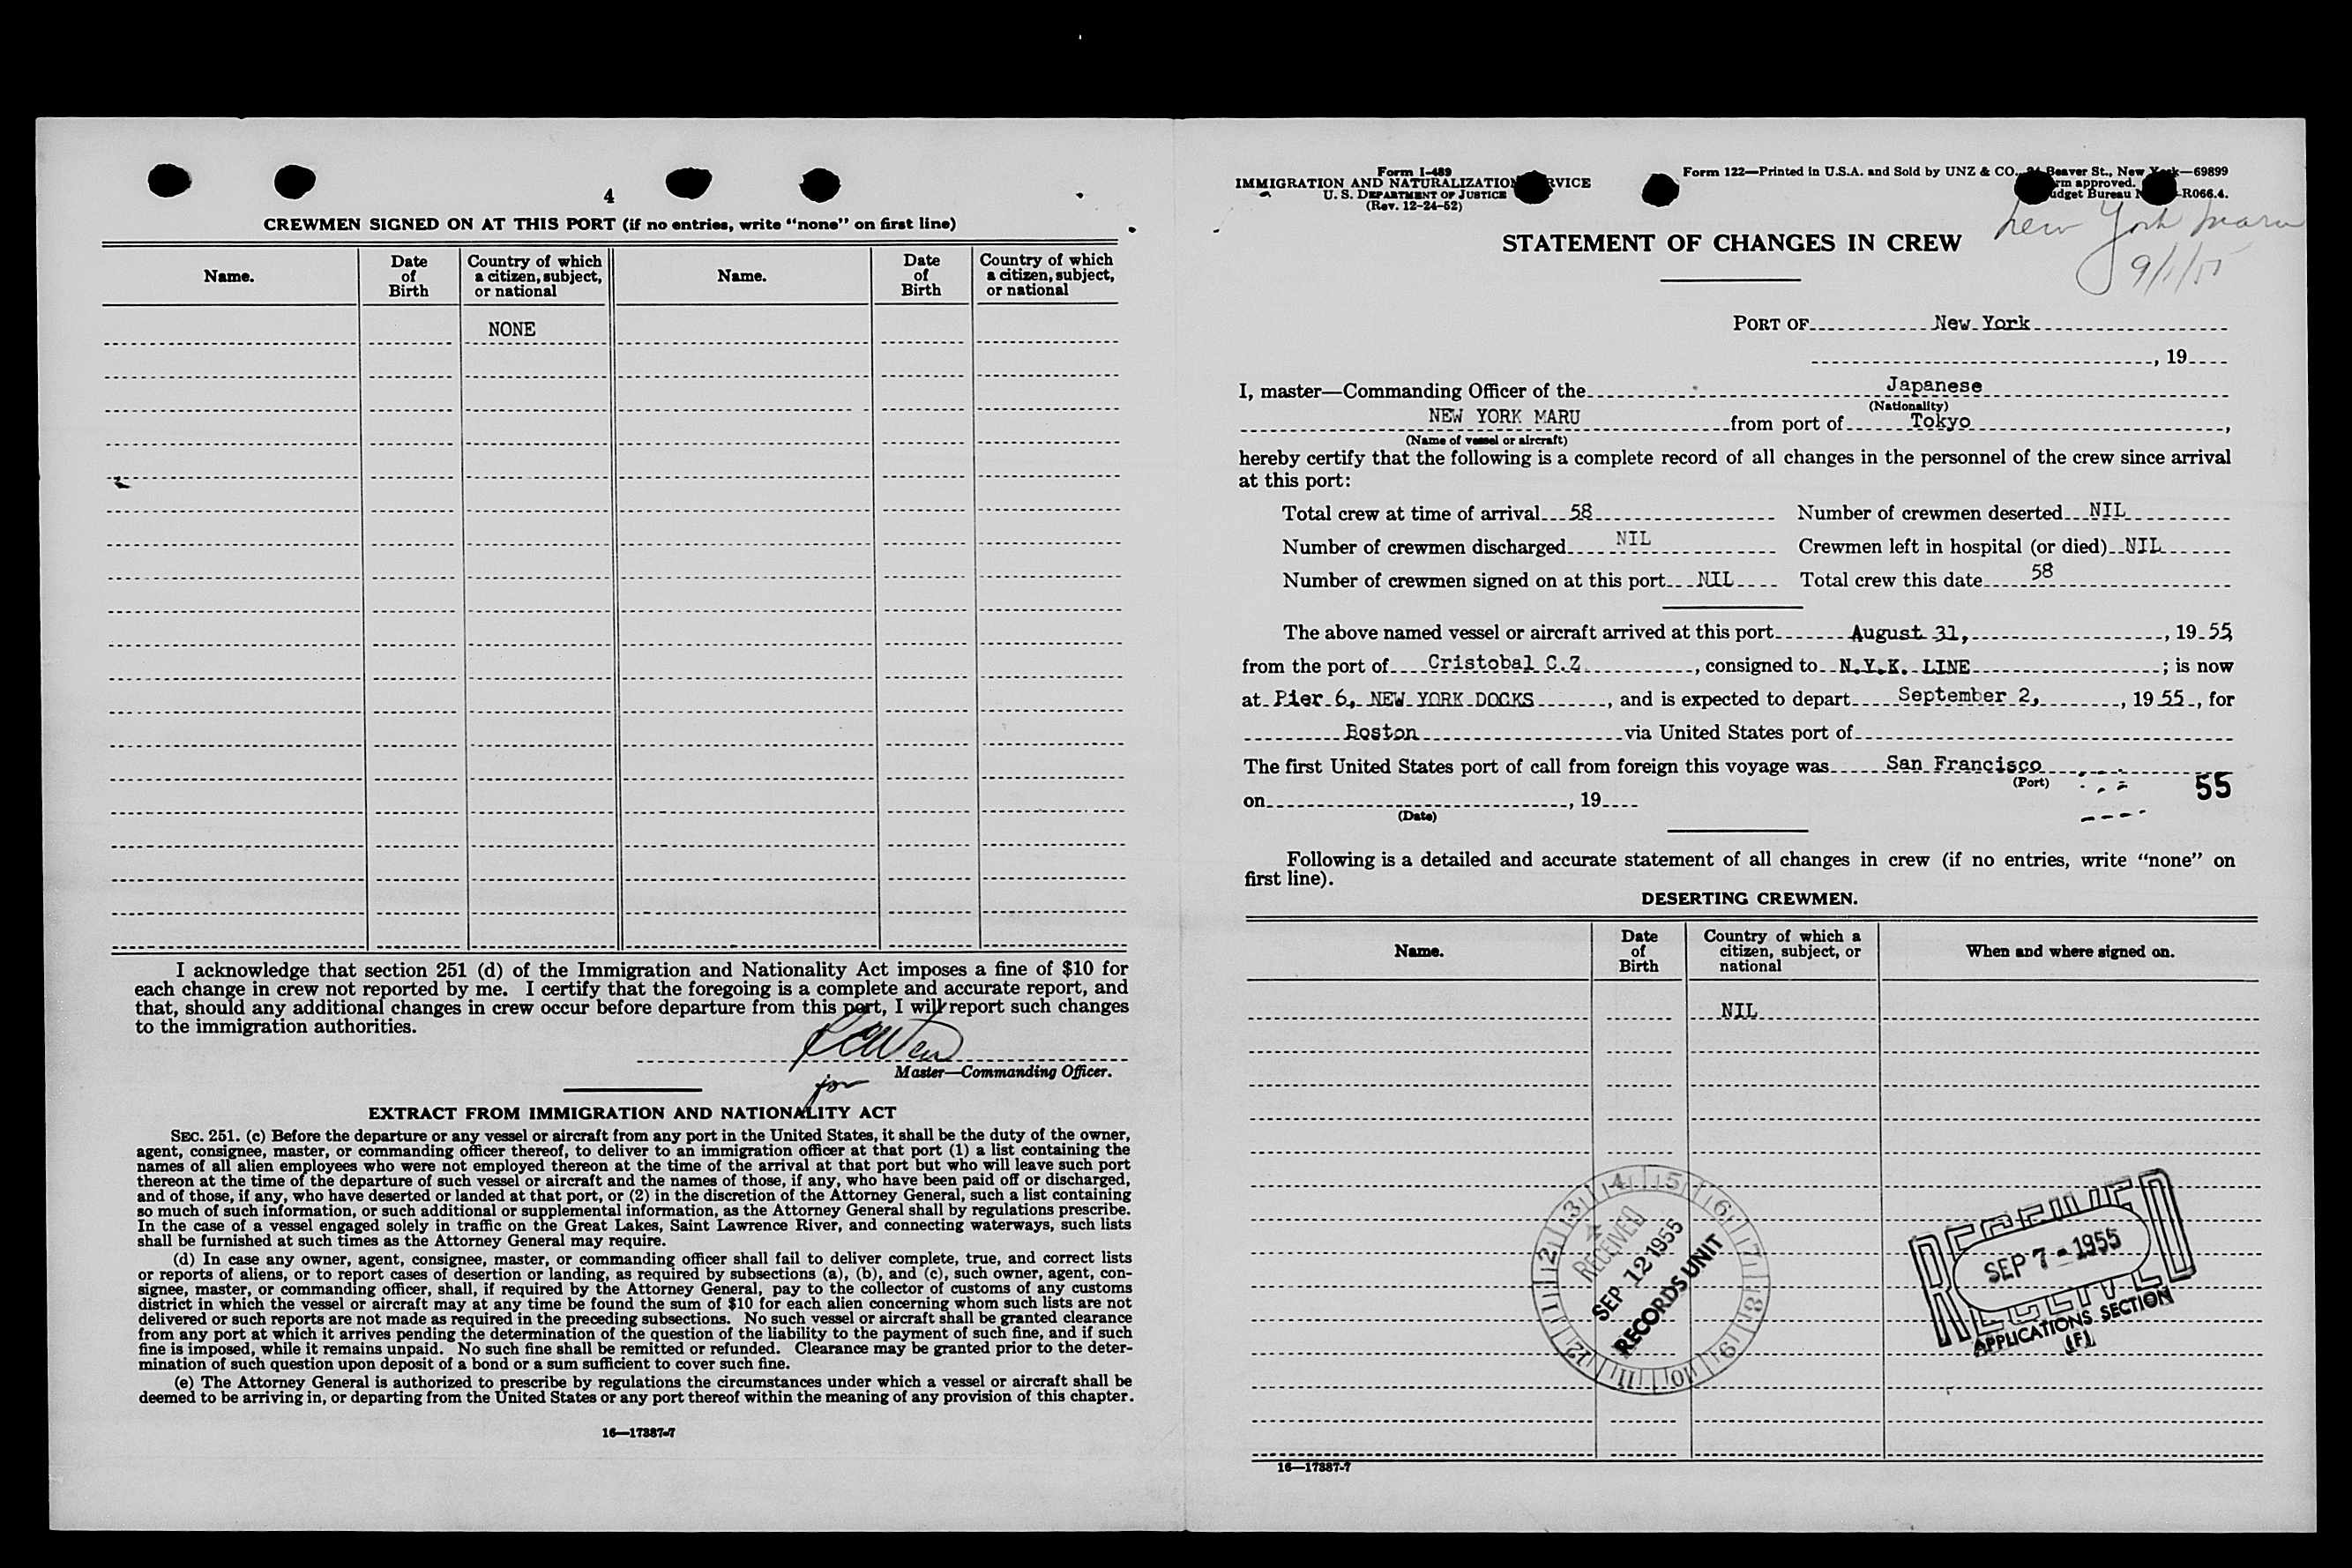 4
CREWMEN SIGNED ON AT THIS PORT (if no entries, write “none” on first line)
Name. Date of Birth Country of which a citizen, subject, or national Name. Date of Birth Country of which a citizen, subject, or national
NONE
I acknowledge that section 251 (d) of the Immigration and Nationality Act imposes a fine of $10 for
each change in crew not reported by me. I certify that the foregoing is a complete and accurate report, and
that, should any additional changes in crew occur before departure from this port, I will report such changes
to the immigration authorities.
for
Master—Commanding Officer.
EXTRACT FROM IMMIGRATION AND NATIONALITY ACT
SEC. 251. (c) Before the departure or any vessel or aircraft from any port in the United States, it shall be the duty of the owner,
agent, consignee, master, or commanding officer thereof, to deliver to an immigration officer at that port (1) a list containing the
names of all alien employees who were not employed thereon at the time of the arrival at that port but who will leave such port
thereon at the time of the departure of such vessel or aircraft and the names of those, if any, who have been paid off or discharged,
and of those, if any, who have deserted or landed at that port, or (2) in the discretion of the Attorney General, such a list containing
so much of such information, or such additional or supplemental information, as the Attorney General shall by regulations prescribe.
In the case of a vessel engaged solely in traffic on the Great Lakes, Saint Lawrence River, and connecting waterways, such lists
shall be furnished at such times as the Attorney General may require.
(d) In case any owner, agent, consignee, master, or commanding officer shall fail to deliver complete, true, and correct lists
or reports of aliens, or to report cases of desertion or landing, as required by subsections (a), (b), and (c), such owner, agent, con-
signee, master, or commanding officer, shall, if required by the Attorney General, pay to the collector of customs of any customs
district in which the vessel or aircraft may at any time be found the sum of $10 for each alien concerning whom such lists are not
delivered or such reports are not made as required in the preceding subsections. No such vessel or aircraft shall be granted clearance
from any port at which it arrives pending the determination of the question of the liability to the payment of such fine, and if such
fine is imposed, while it remains unpaid. No such fine shall be remitted or refunded. Clearance may be granted prior to the deter-
mination of such question upon deposit of a bond or a sum sufficient to cover such fine.
(e) The Attorney General is authorized to prescribe by regulations the circumstances under which a vessel or aircraft shall be
deemed to be arriving in, or departing from the United States or any port thereof within the meaning of any provision of this chapter.
16—17387-7
Form I-489
IMMIGRATION AND NATURALIZATION SERVICE
U. S. DEPARTMENT OF JUSTICE
(Rev. 12-24-52)
Form 122—Printed in U.S.A. and Sold by UNZ & CO., Beaver St., New York—69899
approved.
Budget Bureau R066.4.
New York Maru
9/1/55
STATEMENT OF CHANGES IN CREW
PORT OF New York
, 19
I, master—Commanding Officer of the Japanese
(Nationality)
NEW YORK MARU from port of Tokyo,
(Name of vessel or aircraft)
hereby certify that the following is a complete record of all changes in the personnel of the crew since arrival
at this port:
Total crew at time of arrival 58 Number of crewmen deserted NIL
Number of crewmen discharged NIL Crewmen left in hospital (or died) NIL
Number of crewmen signed on at this port NIL Total crew this date 58
The above named vessel or aircraft arrived at this port August 31, , 19 55,
from the port of Cristobal C.Z , consigned to N.Y.K. LINE ; is now
at Pier 6, NEW YORK DOCKS , and is expected to depart September 2, , 19 55 , for
Boston via United States port of
The first United States port of call from foreign this voyage was San Francisco
(Port)
55
on , 19
(Date)
Following is a detailed and accurate statement of all changes in crew (if no entries, write “none” on
first line).
DESERTING CREWMEN.
Name. Date of Birth Country of which a citizen, subject, or national When and where signed on.
NIL
1 2 3 4 5 6 7 8 9 10 11 12
RECEIVED
SEP 12 1955
RECORDS UNIT
RECEIVED
SEP 7 - 1955
APPLICATIONS SECTION
(F)
16—17387-7